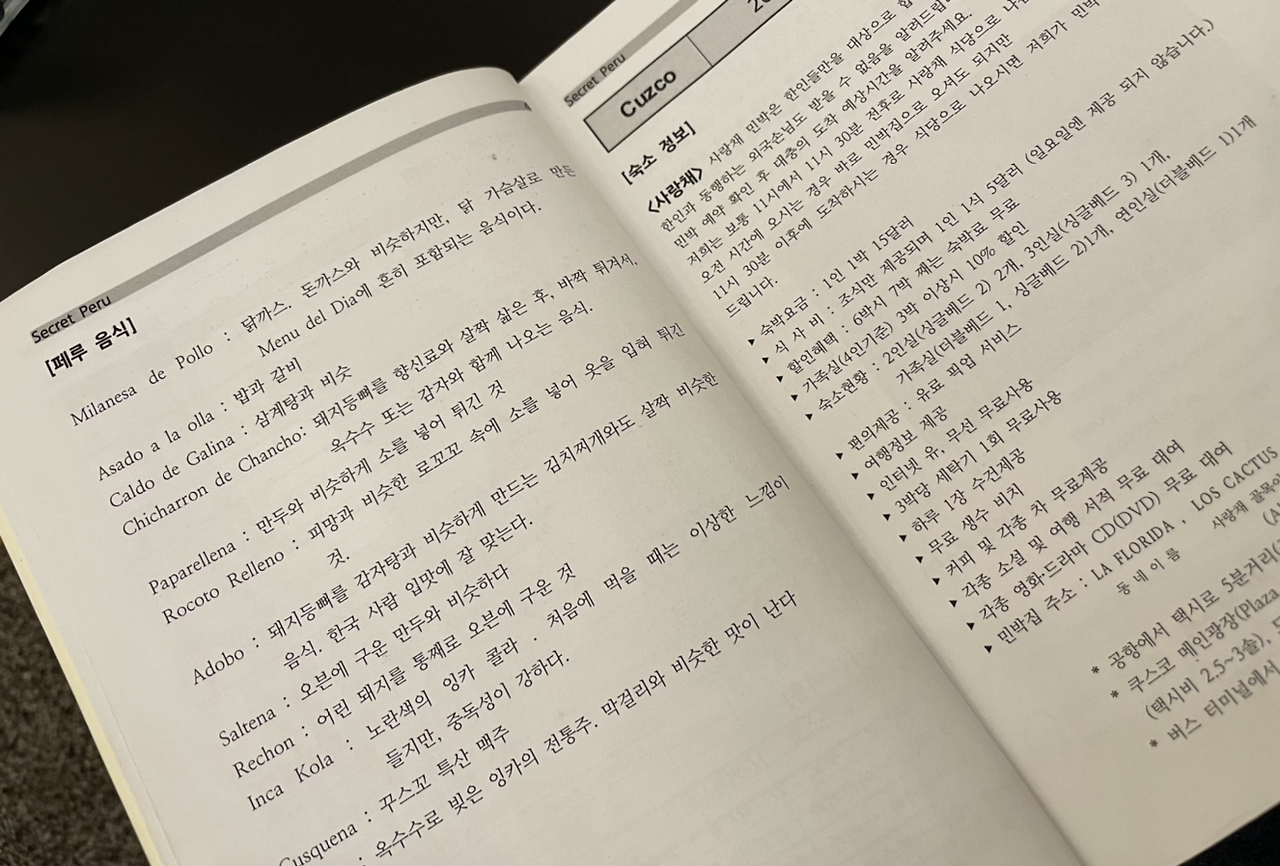 Secret Peru
[페루 음식]
Milanesa de Pollo : 닭까스. 돈까스와 비슷하지만, 닭 가슴살로 만든
Menu del Dia에 흔히 포함되는 음식이다.
Asado a la olla : 밥과 갈비
Caldo de Galina : 삼계탕과 비슷
Chicharron de Chancho: 돼지등뼈를 향신료와 살짝 삶은 후, 바짝 튀겨서,
옥수수 또는 감자와 함께 나오는 음식.
Paparellena : 만두와 비슷하게 소를 넣어 튀긴 것
Rocoto Relleno : 피망과 비슷한 로꼬꼬 속에 소를 넣어 옷을 입혀 튀긴
것.
Adobo : 돼지등뼈를 감자탕과 비슷하게 만드는 김치찌개와도 살짝 비슷한
음식. 한국 사람 입맛에 잘 맞는다.
Saltena : 오븐에 구운 만두와 비슷하다
Rechon : 어린 돼지를 통째로 오븐에 구운 것
Inca Kola : 노란색의 잉카 콜라 . 처음에 먹을 때는 이상한 느낌이
들지만, 중독성이 강하다.
Cusquena : 꾸스꼬 특산 맥주
: 옥수수로 빚은 잉카의 전통주. 막걸리와 비슷한 맛이 난다
Secret Peru
Cuzco
[숙소 정보]
<사랑채> 사랑채 민박은 한인들만을 대상으로
한인과 동행하는 외국손님도 받을 수 없음을
민박 예약 확인 후 대충의 도착 예상시간을 알려주세요.
저희는 보통 11시에서 11시 30분 전후로 사랑채 식당으로
오전 시간에 오시는 경우 바로 민박집으로 오셔도 되지만
11시 30분 이후에 도착하시는 경우 식당으로 나오시면 저희가
드립니다.
▶ 숙박요금 : 1인 1박 15달러
▶ 식 사 비 : 조식만 제공되며 1인 1식 5달러 (일요일엔 제공 되지 않습니다.)
▶ 할인혜택 : 6박시 7박 째는 숙박료 무료
▶ 가족실(4인기준) 3박 이상시 10% 할인
▶ 숙소현황 : 2인실(싱글베드 2) 2개, 3인실(싱글베드 3) 1개,
가족실(더블베드 1, 싱글베드 2)1개, 연인실(더블베드 1)1개
▶ 편의제공 : 유료 픽업 서비스
▶ 여행정보 제공
▶ 인터넷 유, 무선 무료사용
▶ 3박당 세탁기 1회 무료사용
▶ 하루 1장 수건제공
▶ 무료 생수 비치
▶ 커피 및 각종 차 무료제공
▶ 각종 소설 및 여행 서적 무료 대여
▶ 각종 영화·드라마 CD(DVD) 무료 대여
▶ 민박집 주소 : LA FLORIDA , LOS CACTUS
동네이름 사랑채 골목
* 공항에서 택시로 5분거리
* 쿠스코 메인광장(Plaza
(택시비 2.5~3솔),
* 버스 터미널에서